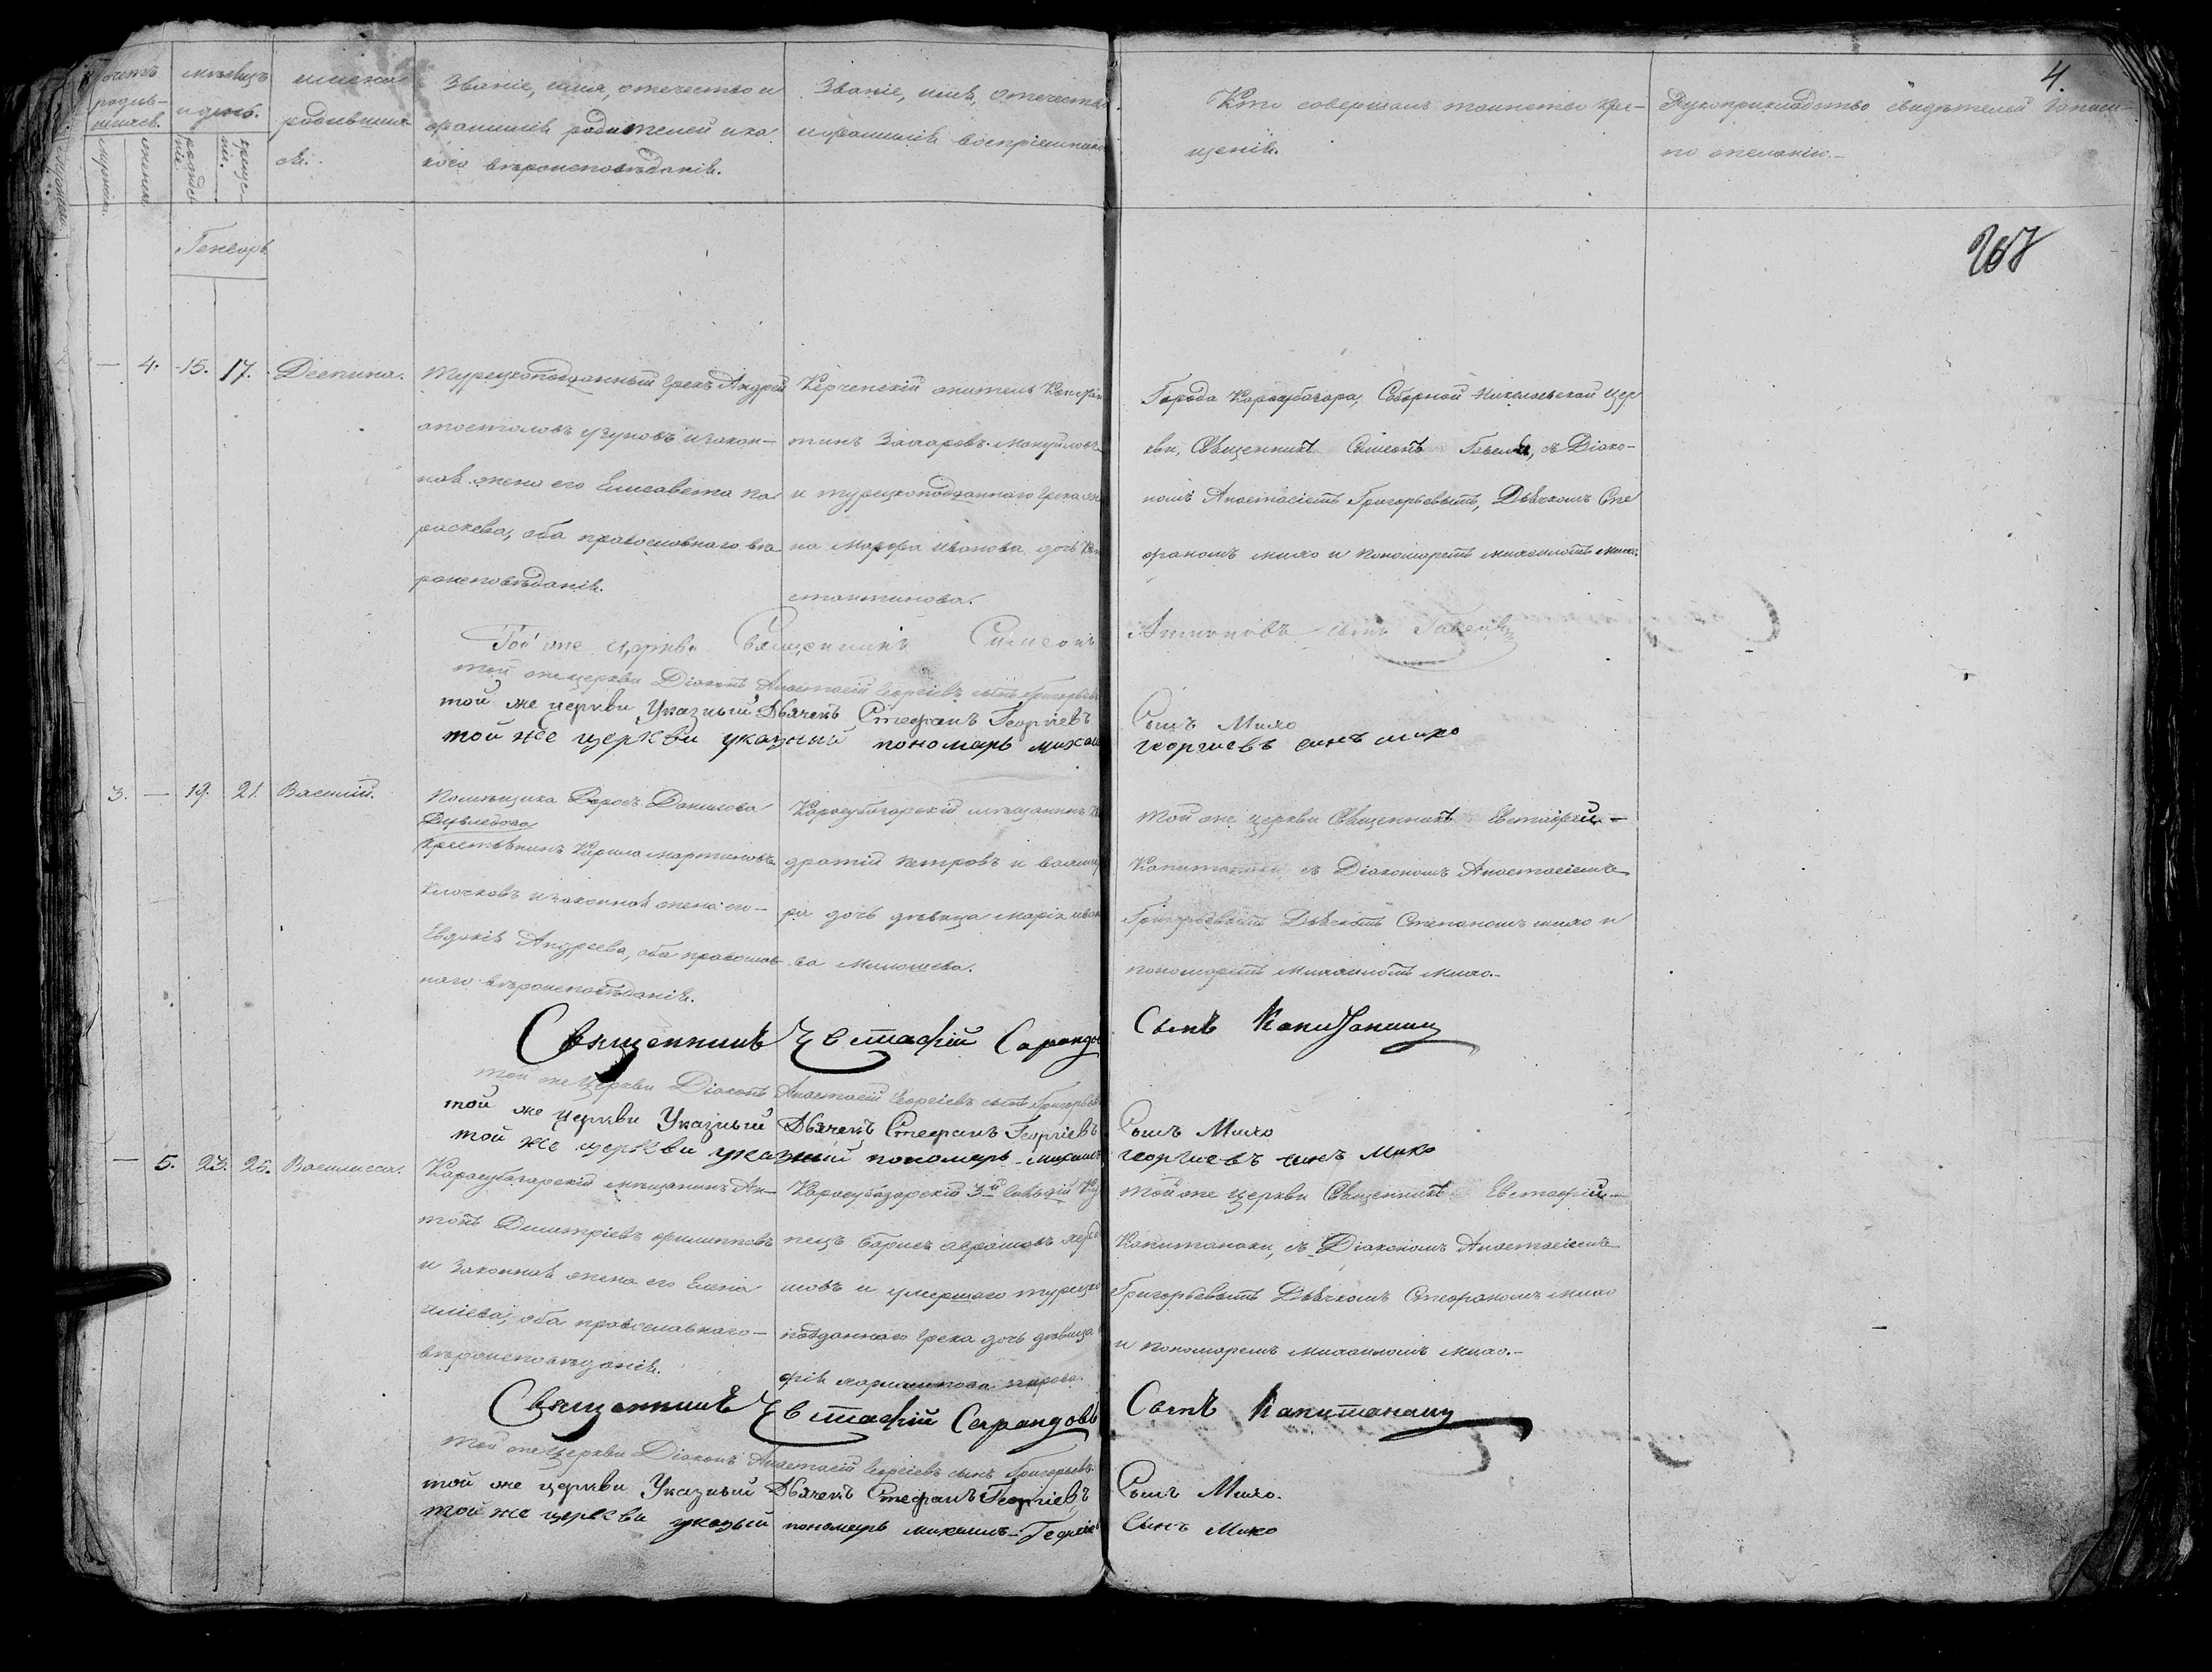 4.
счетъ родив-
шихся.
мужеска.
женска.
мѣсяцъ
и день.
рожде-
нія.
креще-
нія.
имена
родивших-
ся.
Званіе, имя, отечество и
фамилія родителей и ка-
кого вѣроисповѣданія.
Званіе, имя, отечество
и фамилія воспріемнико
Кто совершалъ таинство кре-
щенія.
Рукоприкладство свидѣтелей записи
по желанію.
Генварь
— 4. 15. 17. Деспина.
Турецкоподданный Грекъ Андрей
апостоловъ узуновъ и закон-
ная жена его Елисавета па
раскева, оба православнаго вѣ
роисповѣданія.
Керченскій житель Констан
тинъ Захаровъ
и турецкоподданнаго Грека
на Марфа Иванова дочь Кон
стантинова.
Города Карасубазара, Соборной Николаевской Цер
кви, Священникъ Симеонъ съ Діако-
номъ Анастасіемъ Григорьевымъ, Дьячкомъ Сте
фаномъ михо и пономаремъ михаиломъ михо.
Той же церкви Священникъ Симеонъ
сынъ
той же церкви Діаконъ Анастасій Георгіевъ сынъ Григорьевъ
той же церкви Указный Дьячекъ Стефанъ Георгіевъ Сынъ Михо
той же церкви указный пономарь михаи георгиевъ синъ михо
3. — 19. 21. Василій.
Помѣщика Данилова
крестьянинъ Кирила мартиновъ
Клочковъ и законная жена его
Евдокія Андреева, оба православ
наго вѣроисповѣданія.
Карасубазарскій мѣщанинъ
дратій петровъ и
ра дочь дѣвица марія иван
ва
той же церкви Священникъ Евстафій
Капитанаки съ Діакономъ Анастасіемъ
Григорьевымъ Дьячкомъ Степаномъ михо и
пономаремъ Михаиломъ михо.
Священникъ Евстафій Сарандо Сынъ Капитанаки
той же Церкви Діаконъ Анастасій Георгіевъ сынъ Григорьев
той же церкви Указный Дьячекъ Стефанъ Георгіевъ Сынъ Михо
той же церкви указний пономарь михаилъ георгиевъ синъ Михо
— 5. 23. 25. Василисса.
Карасубазарскій мѣщанинъ Ан-
тонъ Димитріевъ филиповъ
и Законная жена его Елена
иліева, оба православнаго
вѣроисповѣданія.
Карасубазарскій 3й Гильдій Ку
пецъ Борисъ
мовъ и умершаго турецко
подданнаго Грека дочь дѣвица
фія
той же церкви Священникъ Евстафій
Капитанаки, съ Діакономъ Анастасіемъ
Григорьевымъ Дьячкомъ Стефаномъ михо
и пономаремъ михаиломъ михо.
Священникъ Евстафій Сарандовъ Сынъ Капитанаки
той же Церкви Діаконъ Анастасій Георгіевъ сынъ Григорьевъ
той же церкви Указный Дьячекъ Стефанъ Георгіевъ Сынъ Михо.
той же церкви указый пономарь михаилъ Георгіев Сынъ Михо